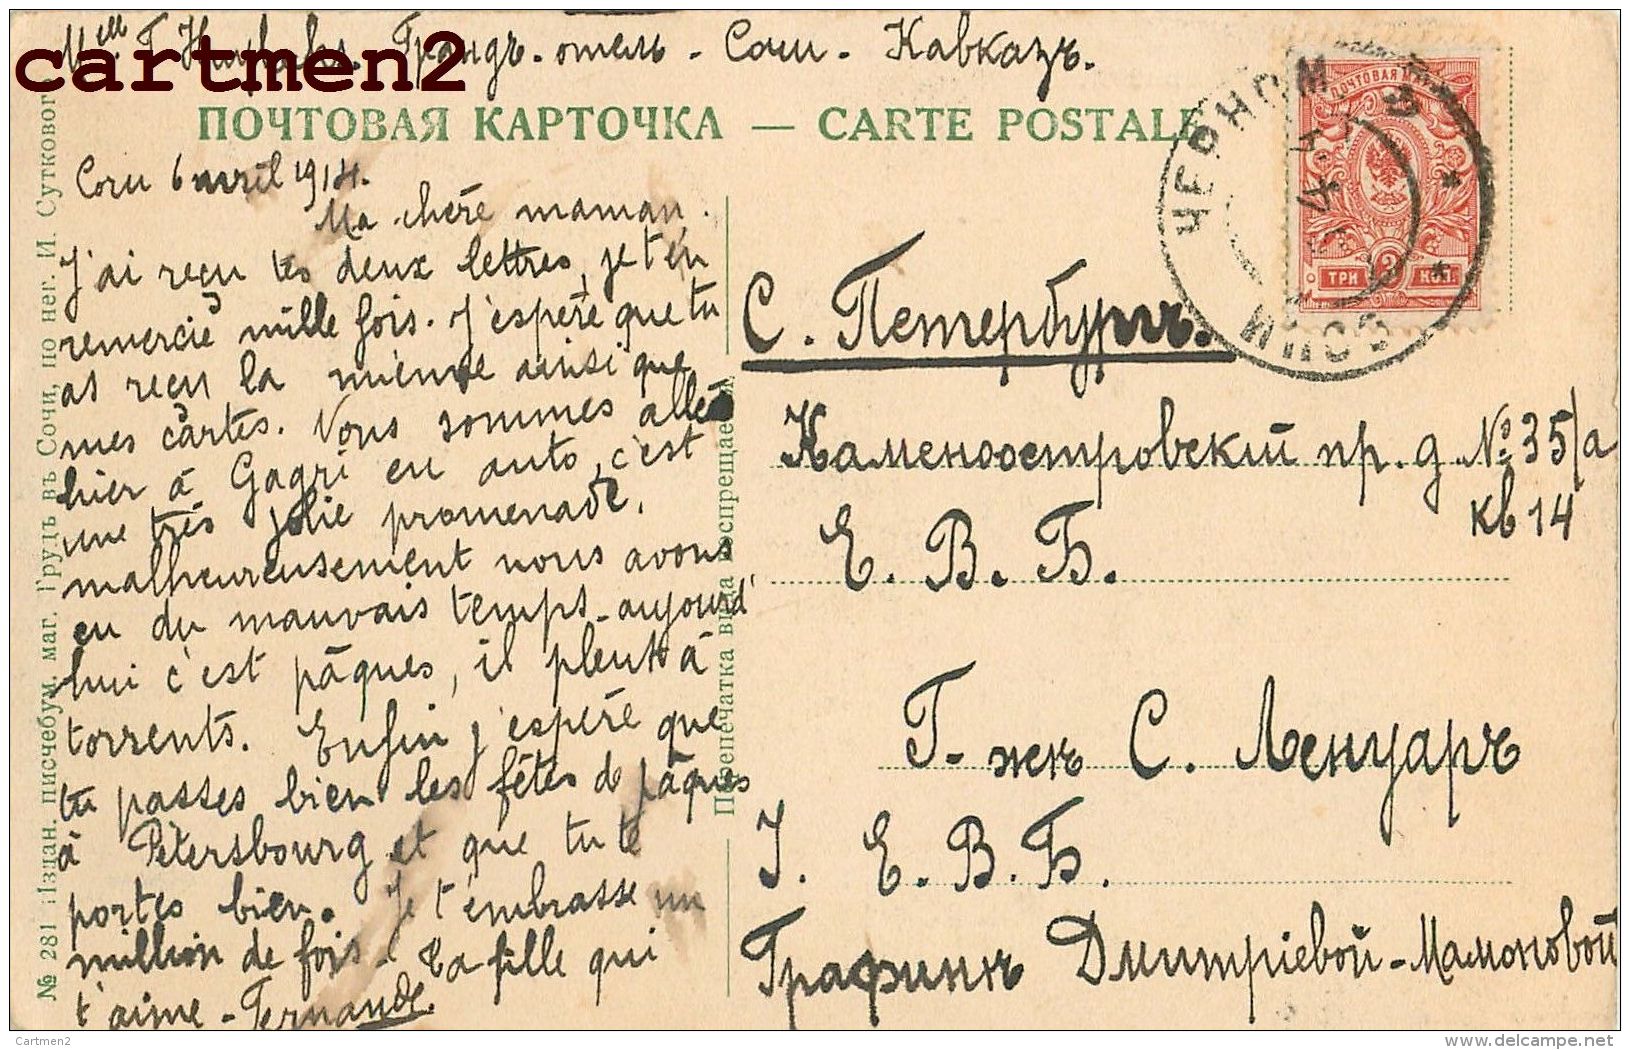 Грандъ-отель - Сочи - Кавказъ.
cartmen2
ПОЧТОВАЯ КАРТОЧКА — CARTE POSTALE
Сочи 6 avril 1914.
Ma chère maman.
J'ai reçu tes deux lettres, je t'en
remercie mille fois. J'espère que tu
as reçu la mienne ainsi que
mes cartes. Nous sommes allés
hier à Gagri en auto, c'est
une très jolie promenade.
malheureusement nous avons
eu du mauvais temps - aujourd'
hui c'est pâques, il pleut à
torrents. Enfin j'espère que
tu passes bien les fêtes de pâques
à Pétersbourg et que tu te
portes bien. Je t'embrasse un
million de fois - Ta fille qui
t'aime - Fernande.
№ 281 Издан. писчебум. маг. Грудъ въ Сочи, по нег. И. Суткового
Перепечатка вида воспрещается
ПОЧТОВАЯ МАР
ТРИ 3 КОП.
ЧЕРНОМ
СОЧИ
С. Петербургъ.
Каменоостровскій пр. д. № 35/а
кв 14
Е. В. Б.
Г-жѣ С. Ленуаръ
J. Е. В. Б.
Графинѣ Дмитріевой-Мамоновой
Cartmen2
www.delcampe.net